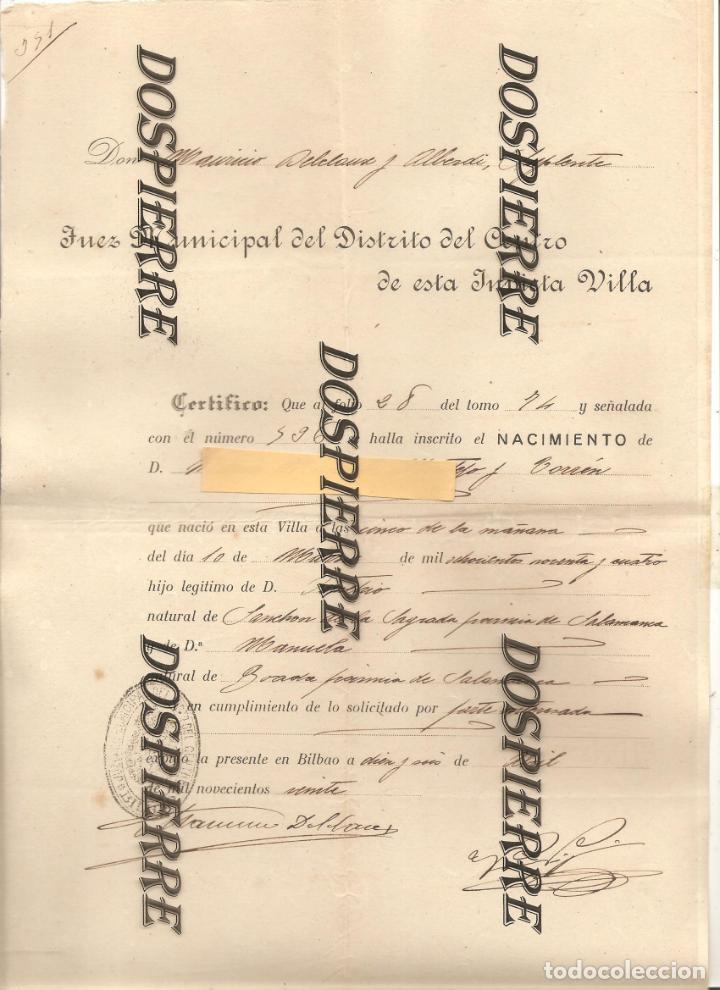 DOSPIERRE
DOSPIERRE
Don Mauricio Delclaux y Alberdi, Suplente
Juez Municipal del Distrito del Centro
de esta Invicta Villa
DOSPIERRE
Certifico: Que a folio 28 del tomo 74 y señalada
con el número 596 se halla inscrito el NACIMIENTO de
D. y
que nació en esta Villa a las cinco de la mañana
del día 10 de de mil ochocientos noventa y cuatro
hijo legitimo de D.
natural de Sanchon de la Sagrada provincia de Salamanca
y de D.ª Manuela
natural de Boada provincia de Salamanca
en cumplimiento de lo solicitado por parte interesada
expido la presente en Bilbao a diez y seis de Abril
de mil novecientos veinte
DOSPIERRE
DOSPIERRE
todocoleccion